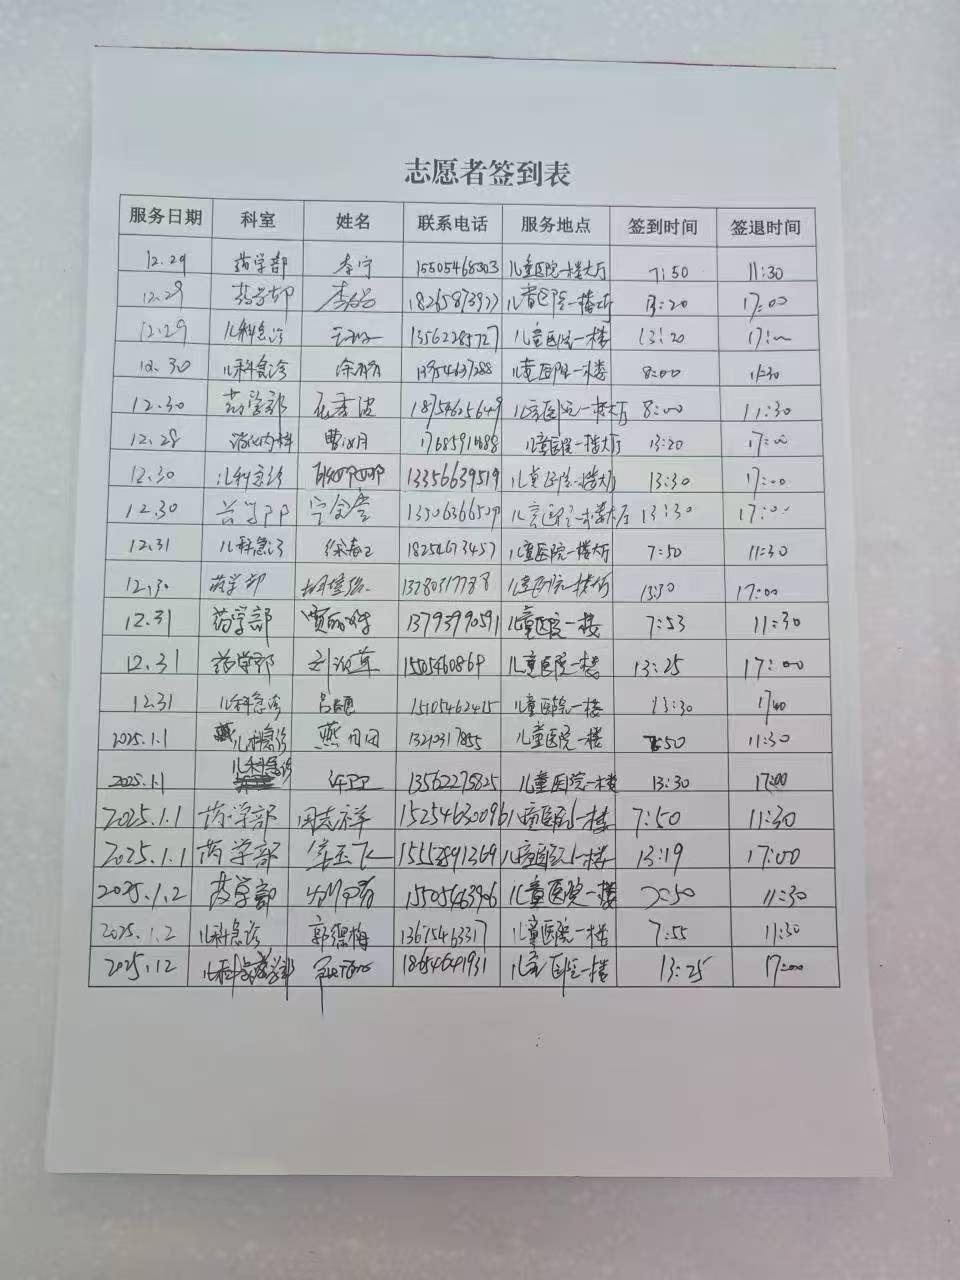 志愿者签到表
服务日期 科室 姓名 联系电话 服务地点 签到时间 签退时间
12.29 药学部 李宁 15505468303 儿童医院一楼大厅 7:50 11:30
12.29 药学部 18265873977 儿童医院一楼大厅 13:20 17:00
12.29 儿科急诊 13562285727 儿童医院一楼 13:20 17:00
12.30 儿科急诊 13954637288 儿童医院一楼 8:00 11:30
12.30 药学部 18754625649 儿童医院一楼大厅 8:00 11:30
12.28 消化内科 儿童医院一楼大厅 13:20 17:00
12.30 儿科急诊 13356639519 儿童医院一楼大厅 13:30 17:00
12.30 儿童医院一楼大厅 13:30 17:00
12.31 儿科急诊 18254673457 儿童医院一楼大厅 7:50 11:30
12.30 药学部 儿童医院一楼 13:30 17:00
12.31 药学部 13793990591 儿童医院一楼 7:53 11:30
12.31 药学部 1505460869 儿童医院一楼 13:25 17:00
12.31 儿科急诊 15105462415 儿童医院一楼 13:30
2025.1.1 儿科急诊 燕田田 13210317855 儿童医院一楼 7:50 11:30
2025.1.1 儿科急诊 13562275825 儿童医院一楼 13:30 17:00
2025.1.1 药学部 周志祥 15254630096 儿童医院一楼 7:50 11:30
2025.1.1 药学部 儿童医院一楼 13:19 17:00
2025.1.2 药学部 儿童医院一楼 7:50 11:30
2025.1.2 儿科急诊 郭德梅 儿童医院一楼 7:55 11:30
2025.12 18654641931 儿童医院一楼 13:25 17:00